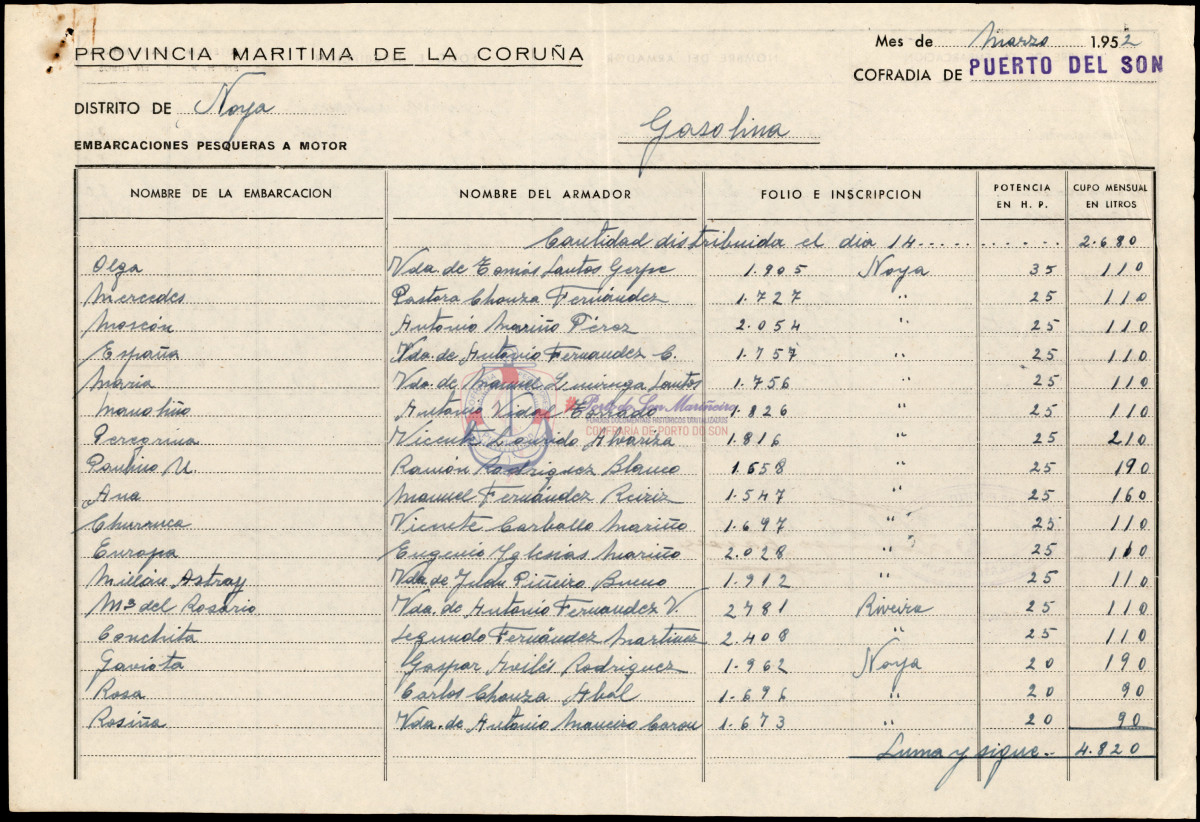 Mes de Marzo 1.952
PROVINCIA MARITIMA DE LA CORUÑA
COFRADIA DE PUERTO DEL SON
DISTRITO DE Noya
Gasolina
EMBARCACIONES PESQUERAS A MOTOR
NOMBRE DE LA EMBARCACION NOMBRE DEL ARMADOR FOLIO E INSCRIPCION POTENCIA EN H. P. CUPO MENSUAL EN LITROS
Cantidad distribuida el dia 14 2.680
Olga Vda. de Tomás Santos Gerpe 1.905 Noya 35 110
Mercedes Pastora Chouza Fernández 1.727 " 25 110
Moscón Antonio Mariño Pérez 2.054 " 25 110
España Vda. de Antonio Fernandez C. 1.757 " 25 110
Maria Vda. de Manuel Santos 1.756 " 25 110
Manoliño Antonio Vidal 1.826 " 25 110
Peregrina Vicente 1.816 " 25 210
Paulino U. Ramón Rodriguez Blanco 1.658 " 25 190
Ana Manuel Fernández Reiriz 1.547 " 25 160
Churruca Vicente Carballo Mariño 1.697 " 25 110
Europa Eugenio Yglesias Mariño 2.028 " 25 160
Millán Astray Vda. de Juan Piñeiro Bueno 1.912 " 25 110
Mª del Rosario Vda. de Antonio Fernandez V. 2781 Riveira 25 110
Conchita Segundo Fernández Martinez 2.408 " 25 110
Gaviota Gaspar Avilés Rodriguez 1.962 Noya 20 190
Rosa Carlos Chouza Abal 1.696 " 20 90
Rosiña Vda. de Antonio Maneiro Carou 1.673 " 20 90
Suma y sigue 4.820
Porto do Son Mariñeiro
FONDOS DOCUMENTAIS HISTÓRICOS DIXITALIZADOS
CONFRARIA DE PORTO DO SON